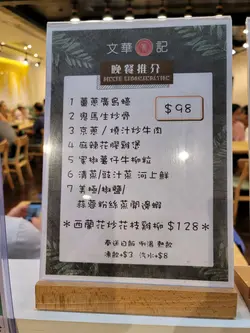 文華 記
晚餐推介
1 薑蔥廣島蠔
2 鬼馬生炒骨
$98
3 京蔥/燒汁炒牛肉
4 麻辣花膠雞煲
5 蜜椒薯仔牛柳粒
6 清蒸/豉汁蒸 河上鮮
7 美極/椒鹽/
蒜蓉粉絲蒸開邊蝦
*西蘭花炒花枝雞柳 $128*
奉送白飯 例湯 熱飲
凍飲+$3 汽水+$8